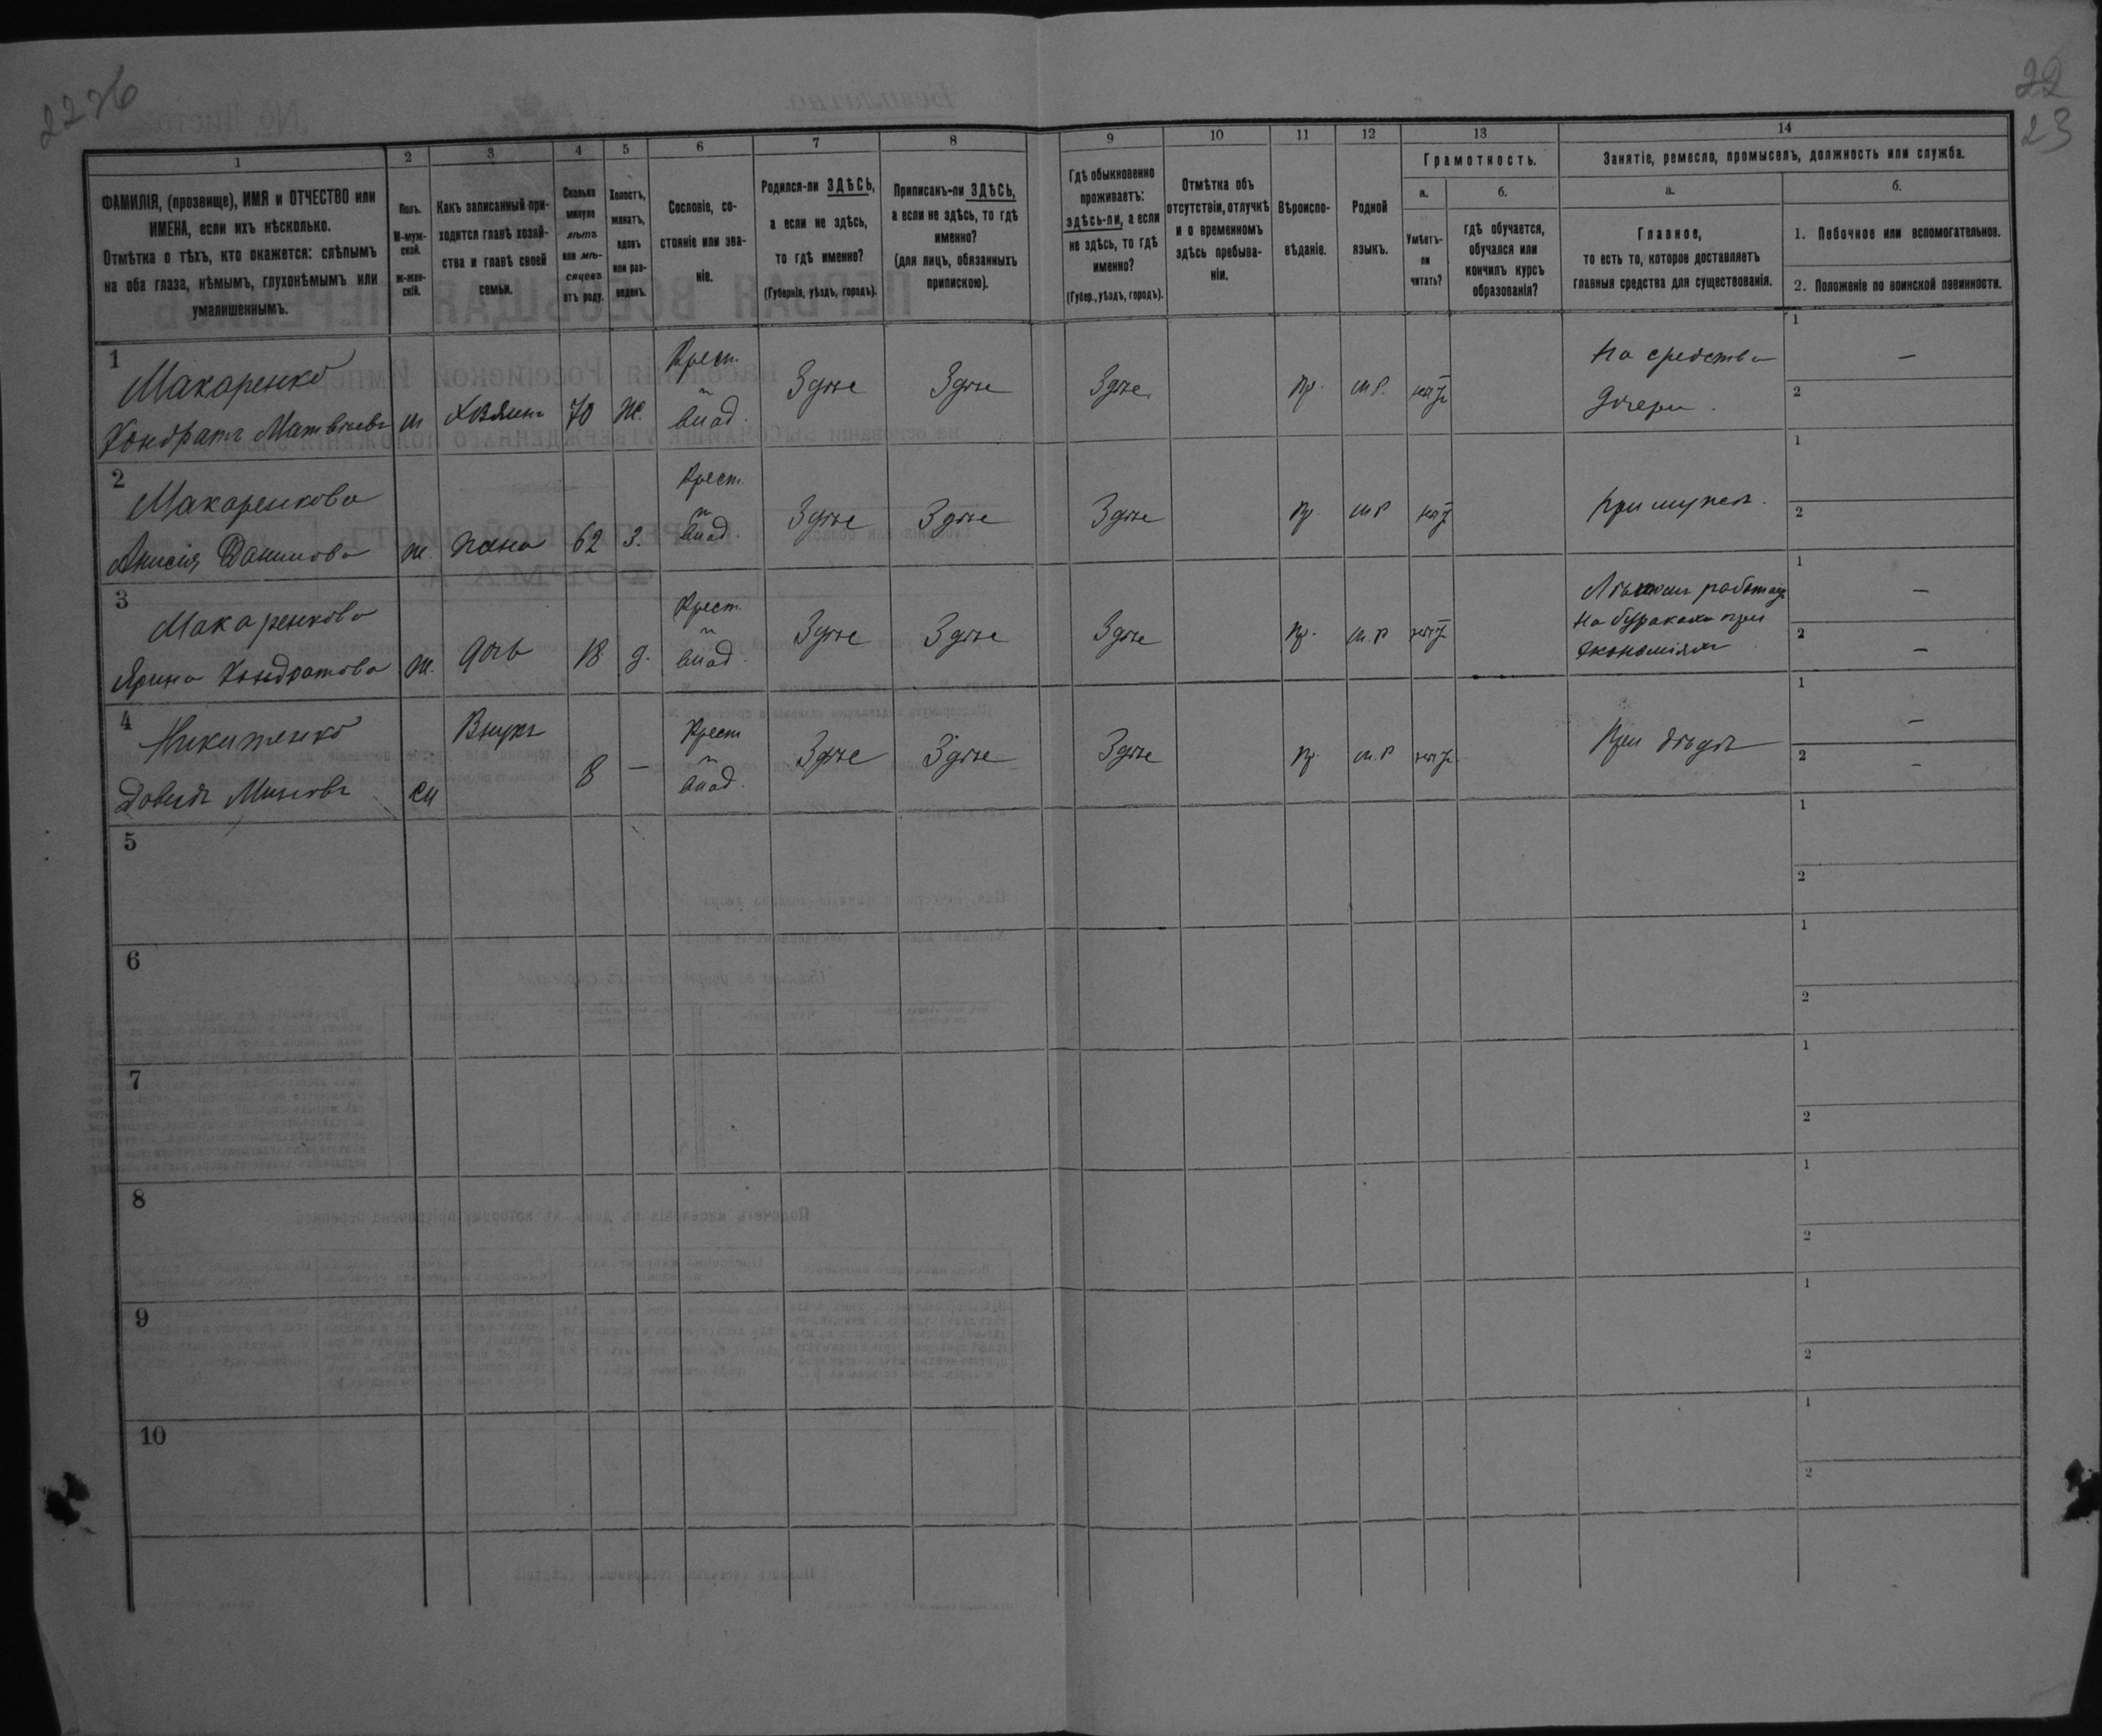 2276
22
23
1
2
3
4
5
6
7
8
9
10
11
12
13
14
ФАМИЛІЯ, (прозвище), ИМЯ и ОТЧЕСТВО или
ИМЕНА, если ихъ нѣсколько.
Отмѣтка о тѣхъ, кто окажется: слѣпымъ
на оба глаза, нѣмымъ, глухонѣмымъ или
умалишеннымъ.
Полъ.
М-муж-
ской.
ж-жен-
скій.
Какъ записанный при-
ходится главѣ хозяй-
ства и главѣ своей
семьи.
Сколько
минуло
лѣтъ
или мѣ-
сяцевъ
отъ роду.
Холостъ,
женатъ,
вдовъ
или раз-
веденъ.
Сословіе, со-
стояніе или зва-
ніе.
Родился-ли ЗДѢСЬ,
а если не здѣсь,
то гдѣ именно?
(Губернія, уѣздъ, городъ).
Приписанъ-ли ЗДѢСЬ,
а если не здѣсь, то гдѣ
именно?
(для лицъ, обязанныхъ
припискою).
Гдѣ обыкновенно
проживаетъ:
здѣсь-ли, а если
не здѣсь, то гдѣ
именно?
(Губер., уѣздъ, городъ).
Отмѣтка объ
отсутствіи, отлучкѣ
и о временномъ
здѣсь пребыва-
ніи.
Вѣроиспо-
вѣданіе.
Родной
языкъ.
Грамотность.
а.
Умѣетъ-
ли
читать?
б.
гдѣ обучается,
обучался или
кончилъ курсъ
образованія?
Занятіе, ремесло, промыселъ, должность или служба.
а.
Главное,
то есть то, которое доставляетъ
главныя средства для существованія.
б.
1. Побочное или вспомогательное.
2. Положеніе по воинской повинности.
1
Макаренко
Кондратъ Матвѣевъ
м
хозяинъ
70
ж.
Крест.
из
влад.
Здѣсь
Здѣсь
Здѣсь
пр.
м.р.
нѣтъ
на средства
дочери.
1
—
2
2
Макаренкова
Анисія Данилова
ж.
жена
62
з.
Крест.
из
влад.
Здѣсь
Здѣсь
Здѣсь
пр.
м.р.
нѣтъ
при мужѣ.
1
2
3
Макаренкова
Ярина Кондратова
ж.
дочь
18
д.
Крест.
из
влад.
Здѣсь
Здѣсь
Здѣсь
пр.
м.р.
нѣтъ
работаетъ
на буракахъ при
экономіяхъ
1
—
2
—
4
Никитенко
Давидъ
м
Внукъ
8
—
Крест
из
влад.
Здѣсь
Здѣсь
Здѣсь
пр.
м.р
нѣтъ
при дѣдѣ
1
—
2
—
5
1
2
6
1
2
7
1
2
8
1
2
9
1
2
10
1
2